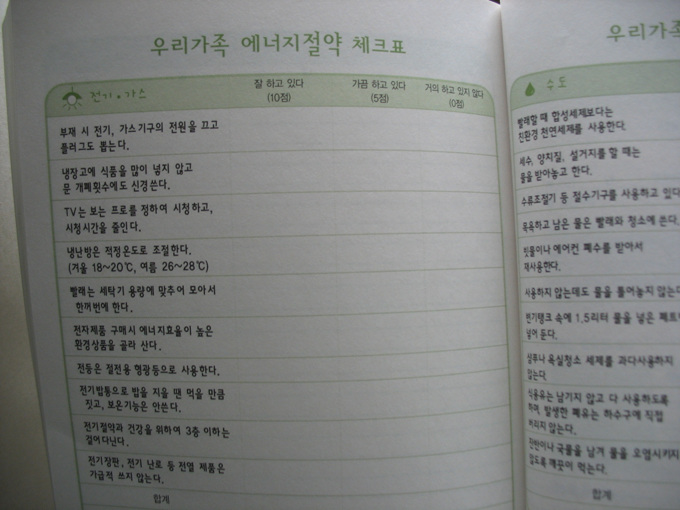 우리가족 에너지절약 체크표
전기·가스
잘 하고 있다
(10점)
가끔 하고 있다
(5점)
거의 하고 있지 않다
(0점)
부재 시 전기, 가스기구의 전원을 끄고
플러그도 뽑는다.
냉장고에 식품을 많이 넣지 않고
문 개폐횟수에도 신경쓴다.
TV는 보는 프로를 정하여 시청하고,
시청시간을 줄인다.
냉난방은 적정온도로 조절한다.
(겨울 18~20℃, 여름 26~28℃)
빨래는 세탁기 용량에 맞추어 모아서
한꺼번에 한다.
전자제품 구매시 에너지효율이 높은
환경상품을 골라 산다.
전등은 절전용 형광등으로 사용한다.
전기밥통으로 밥을 지을 땐 먹을 만큼
짓고, 보온기능은 안쓴다.
전기절약과 건강을 위하여 3층 이하는
걸어다닌다.
전기장판, 전기 난로 등 전열 제품은
가급적 쓰지 않는다.
합계
우리가족
수도
빨래할 때 합성세제보다는
친환경 천연세제를 사용한다.
세수, 양치질, 설거지를 할 때는
물을 받아놓고 한다.
수류조절기 등 절수기구를 사용하고 있다
목욕하고 남은 물은 빨래와 청소에 쓴다.
빗물이나 에어컨 폐수를 받아서
재사용한다.
사용하지 않는데도 물을 틀어놓지 않는다
변기탱크 속에 1.5리터 물을 넣은 페트
넣어 둔다.
샴푸나 욕실청소 세제를 과다사용하지
않는다.
식용유는 남기지 않고 다 사용하도록
하며, 발생한 폐유는 하수구에 직접
버리지 않는다.
잔반이나 국물을 남겨 물을 오염시키지
않도록 깨끗이 먹는다.
합계